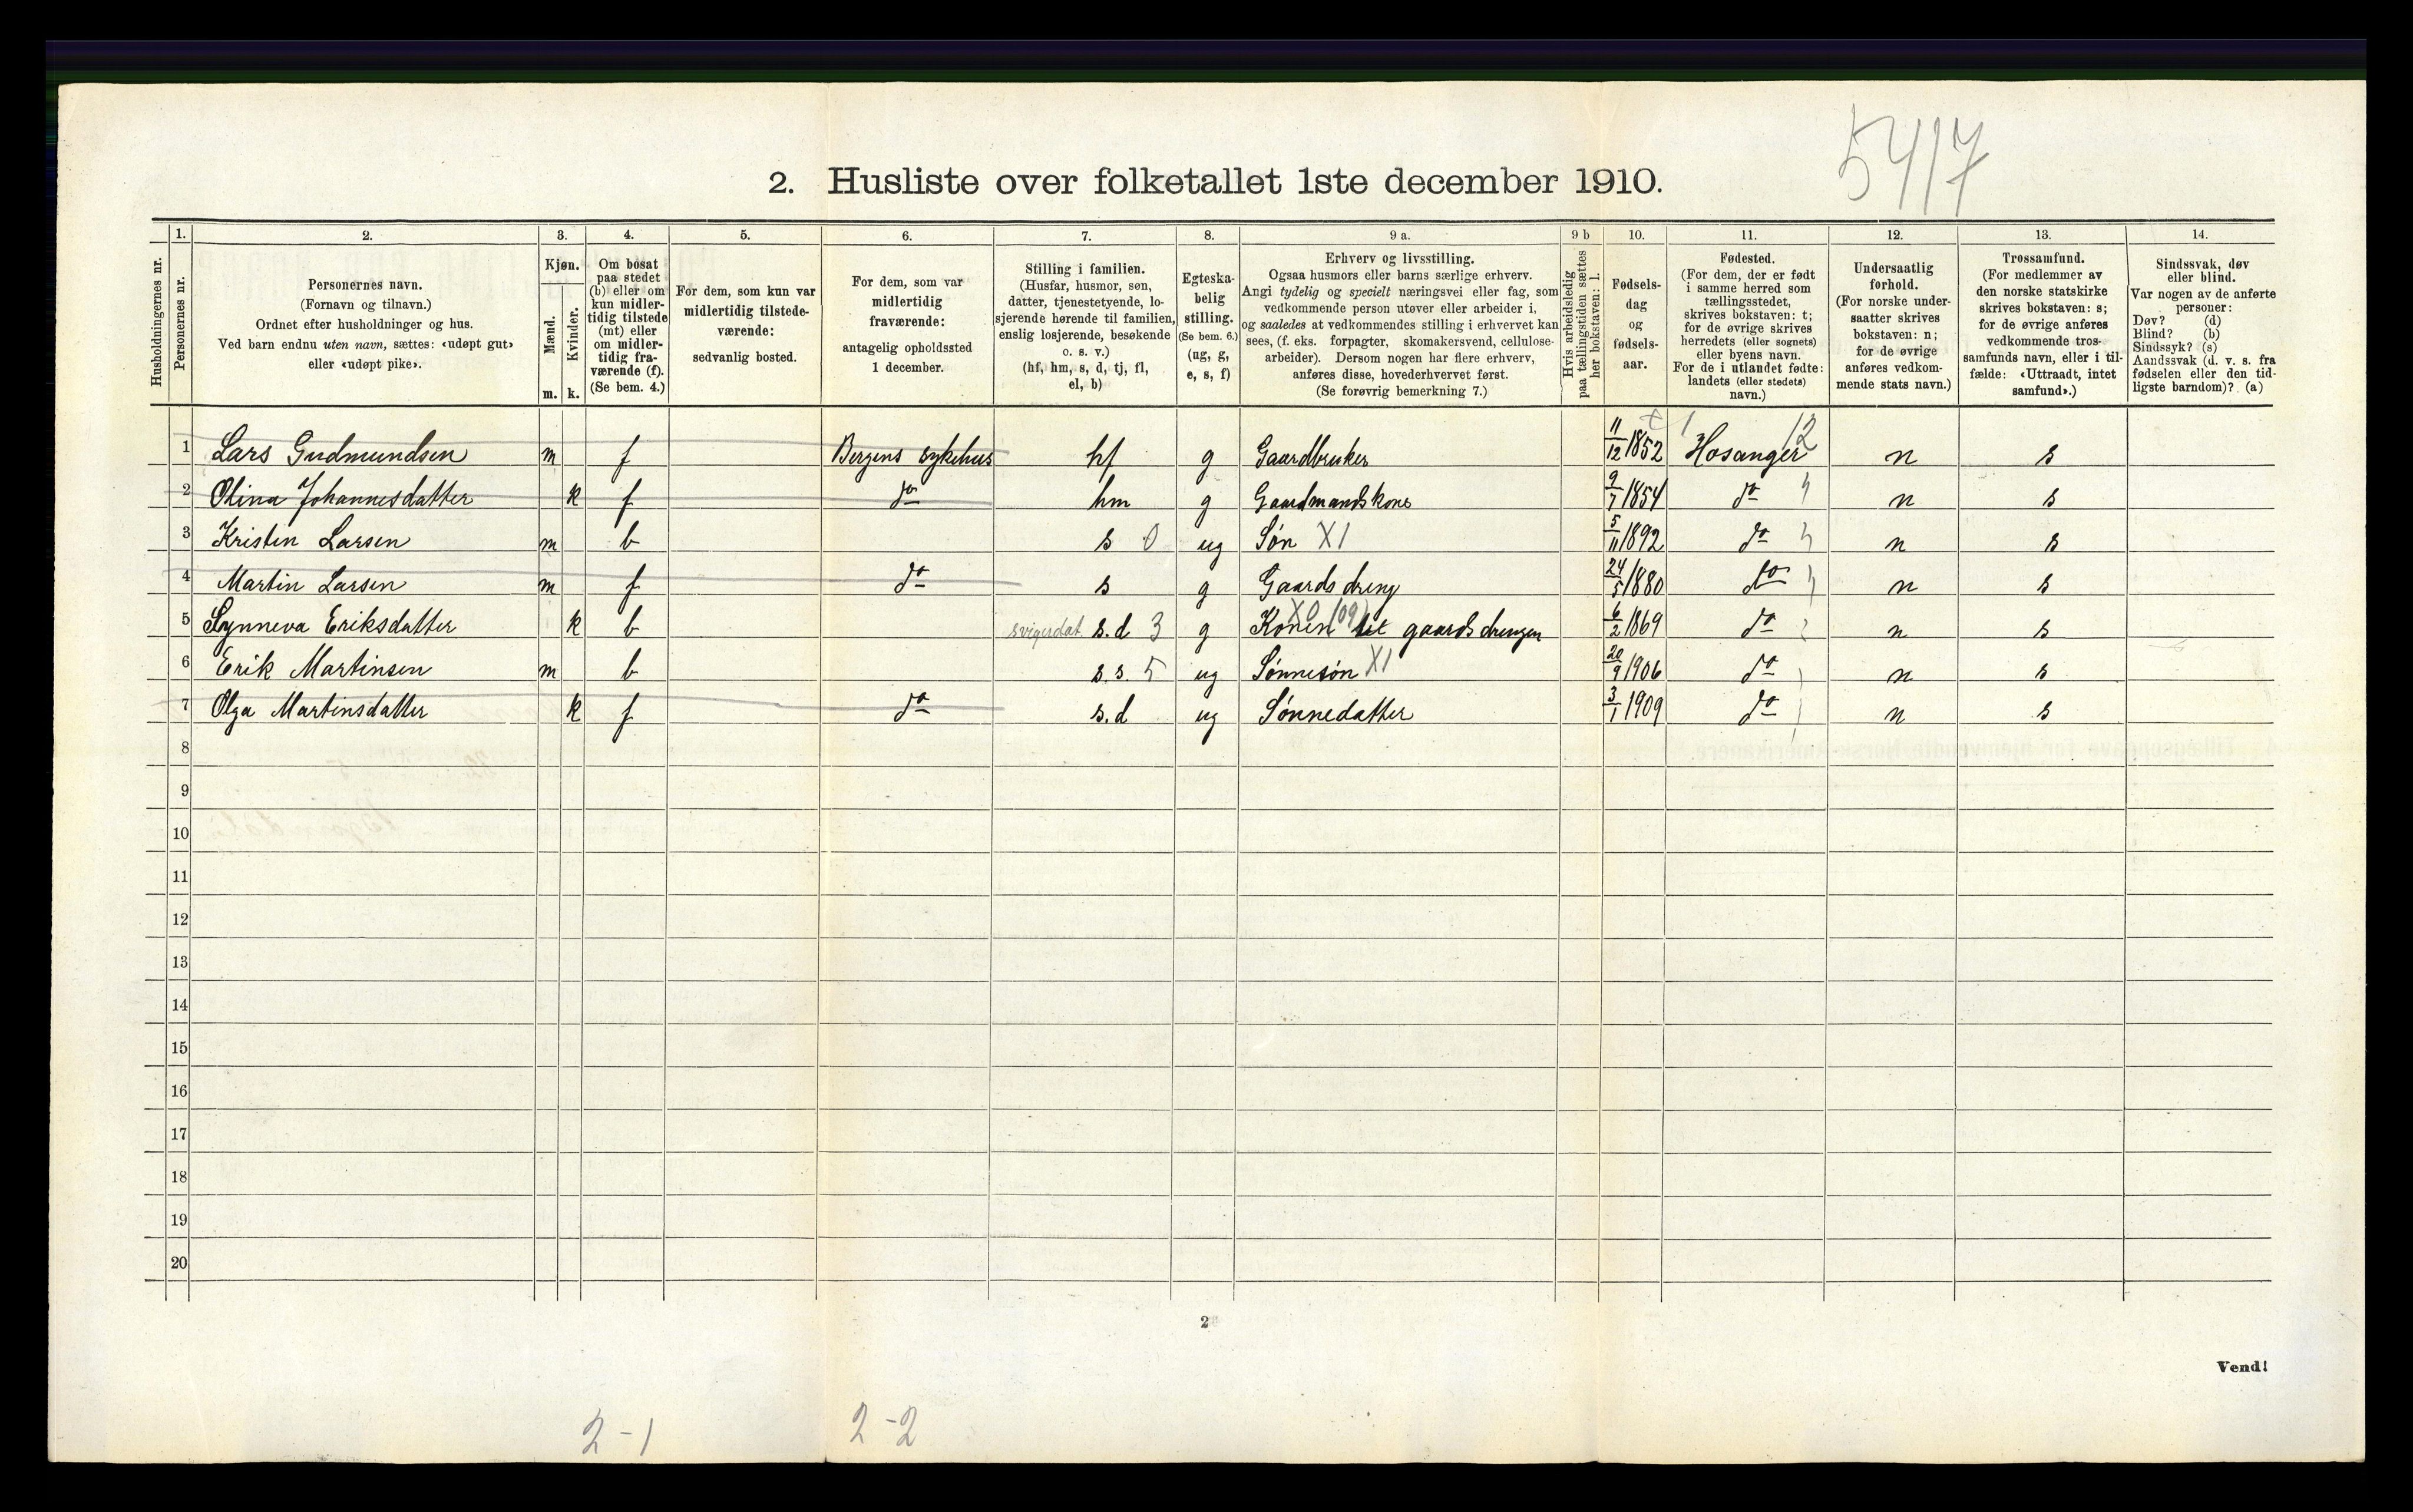 5417
2. Husliste over folketallet 1ste december 1910.
Husholdningernes nr.
1.
Personernes nr.
2.
Personernes navn.
(Fornavn og tilnavn.)
Ordnet efter husholdninger og hus.
Ved barn endnu uten navn, sættes: «udøpt gut»
eller «udøpt pike».
3.
Kjøn.
Mænd.
Kvinder.
m. k.
4.
Om bosat
paa stedet
(b) eller om
kun midler-
tidig tilstede
(mt) eller
om midler-
tidig fra-
værende (f).
(Se bem. 4.)
5.
For dem, som kun var
midlertidig tilstede-
værende:
sedvanlig bosted.
6.
For dem, som var
midlertidig
fraværende:
antagelig opholdssted
1 december.
7.
Stilling i familien.
(Husfar, husmor, søn,
datter, tjenestetyende, lo-
sjerende hørende til familien,
enslig losjerende, besøkende
o. s. v.)
(hf, hm, s, d, tj, fl,
el, b)
8.
Egteska-
belig
stilling.
(Se bem. 6.)
(ug, g,
e, s, f)
9 a.
Erhverv og livsstilling.
Ogsaa husmors eller barns særlige erhverv.
Angi tydelig og specielt næringsvei eller fag, som
vedkommende person utøver eller arbeider i,
og saaledes at vedkommendes stilling i erhvervet kan
sees, (f. eks. forpagter, skomakersvend, cellulose-
arbeider). Dersom nogen har flere erhverv,
anføres disse, hovederhvervet først.
(Se forøvrig bemerkning 7.)
9 b
Hvis arbeidsledig
paa tællingstiden sættes
her bokstaven: l.
10.
Fødsels-
dag
og
fødsels-
aar.
11.
Fødested.
(For dem, der er født
i samme herred som
tællingsstedet,
skrives bokstaven: t;
for de øvrige skrives
herredets (eller sognets)
eller byens navn.
For de i utlandet fødte:
landets (eller stedets)
navn.)
12.
Undersaatlig
forhold.
(For norske under-
saatter skrives
bokstaven: n;
for de øvrige
anføres vedkom-
mende stats navn.)
13.
Trossamfund.
(For medlemmer av
den norske statskirke
skrives bokstaven: s;
for de øvrige anføres
vedkommende tros-
samfunds navn, eller i til-
fælde: «Uttraadt, intet
samfund».)
14.
Sindssvak, døv
eller blind.
Var nogen av de anførte
personer:
Døv? (d)
Blind? (b)
Sindssyk? (s)
Aandssvak (d. v. s. fra
fødselen eller den tid-
ligste barndom)? (a)
1 Lars Gudmundsen m f Bergens sykehus hf g Gaardbruker 11/12 1852 Hosanger 12 n s
2 Olina Johannesdatter k f do hm g Gaardmandskone 9/7 1854 do n s
3 Kristen Larsen m b s 0 ug Søn X1 5/11 1892 do n s
4 Martin Larsen m f do s g Gaardsdreng 24/5 1880 do n s
5 Synneva Eriksdatter k b svigerdat. s.d 3 g Konen til gaardsdrengen X0 (09) 6/2 1869 do n s
6 Erik Martinsen m b s.s. 5 ug Sønnesøn X1 20/9 1906 do n s
7 Olga Martinsdatter k f do s.d ug Sønnedatter 3/1 1909 do n s
8
9
10
11
12
13
14
15
16
17
18
19
20
2
Vend!
2-1 2-2